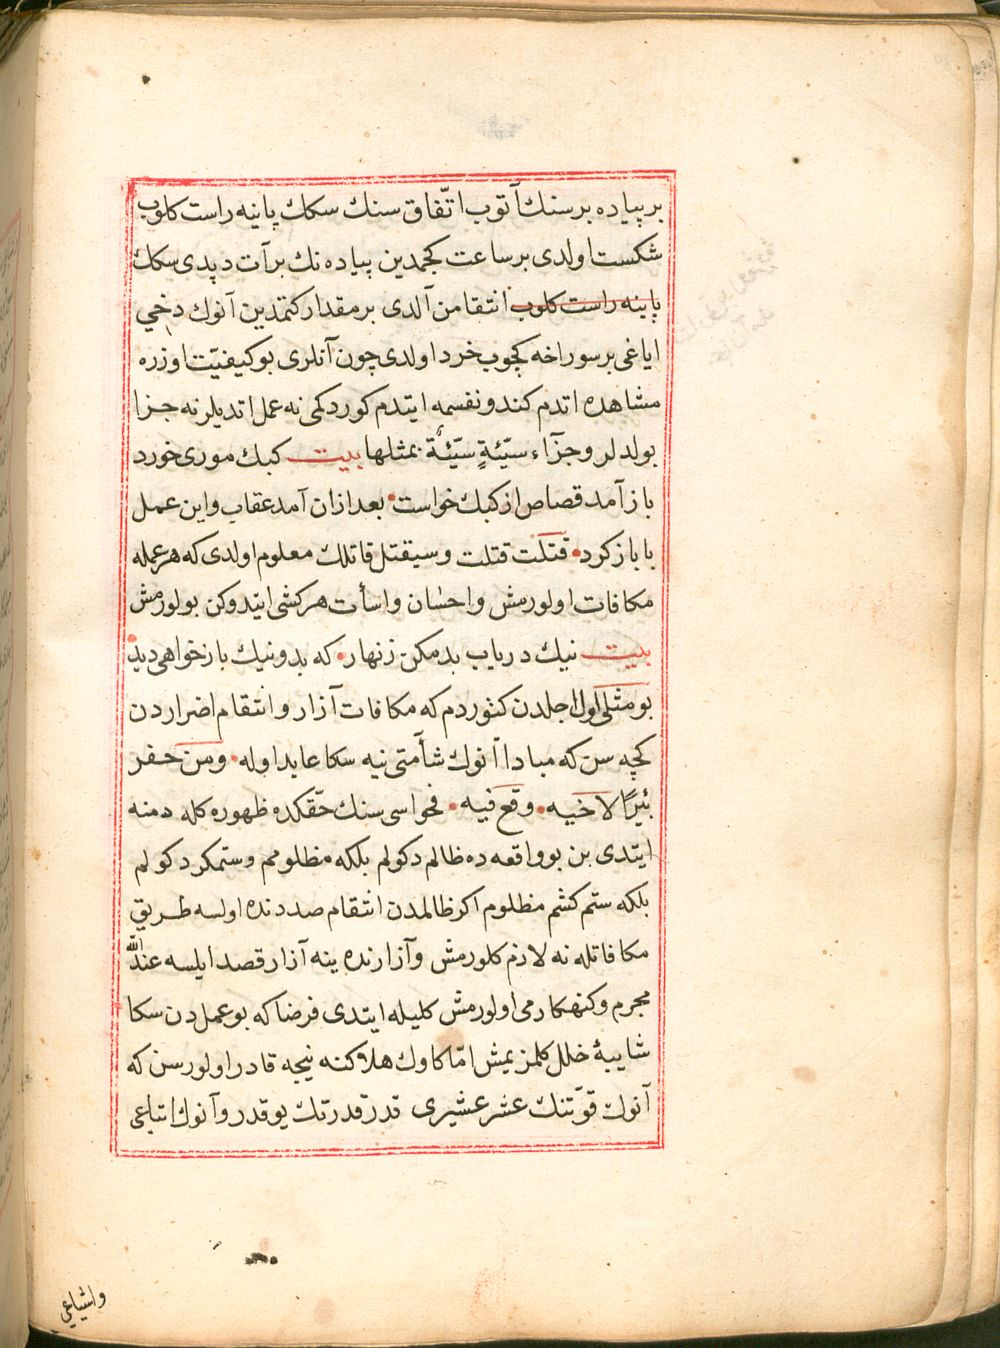 بر پیاده بر سنك آتوب اتّفاق سنك سكك پاینه راست كلوب
شكست اولدی بر ساعت كچمدین پیاده نك بر آت دپدی سكك
پاینه راست كلوب انتقامن آلدی بر مقدار كتمدین آنوك دخی
ایاغی بر سوراخه كچوب خرد اولدی چون آنلری بو كیفیّت اوزره
مشاهده اتدم كندو نفسمه ایتدم كوردكمی نه عمل اتدیلر نه جزا
بولدلر وجزآء سیّئةٍ سیّئةٌ بمثلها بیت كبك موری خورد
باز آمد قصاص از كبك خواست بعد ازان آمد عقاب و این عمل
با باز كرد قتلت قتلت وسیقتل قاتلك معلوم اولدی كه هر عمله
مكافات اولورمش و احسان و اسأت هر كشی ایتدوكن بولورمش
بیت نیك دریاب بد مكن زنهار كه بد و نیك باز خواهی دید
بو مثلی اول اجلدن كتوردم كه مكافات آزار و انتقام اضراردن
كچه سن كه مبادا آنوك شأمتی نیه سكا عاید اوله ومن حفر
بئرًا لاخیه وقع فیه فحواسی سنك حقّكده ظهوره كله دمنه
ایتدی بن بو واقعه ده ظالم دكولم بلكه مظلومم و ستمكر دكولم
بلكه ستم كشم مظلوم اكر ظالمدن انتقام صددنده اولسه طریق
مكافاتله نه لازم كلورمش و آزارنده ینه آزار قصد ایلسه عند الله
مجرم و كنهكار می اولورمش كلیله ایتدی فرضا كه بو عملدن سكا
شایبهٔ خلل كلمز یمش امّا كاوك هلاكنه نیجه قادر اولورسن كه
آنوك قوّتنك عشر عشیری قدر قدرتك یوقدر و آنوك اتباعی
واشیاعی